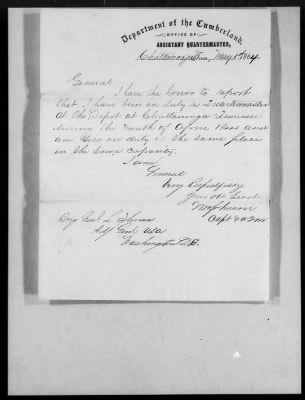 Department of the Cumberland,
OFFICE OF
ASSISTANT QUARTERMASTER,
Chattanooga, Tenn, May 1st 1864
General
I have the honor to report
that I have been on duty as Quartermaster
At the Depot at Chattanooga Tennessee
during the month of April 1864 and
am also on duty at the same place
in the same capacity.
I am
General
Very Respectfully
Your Obt Servt
Capt & AQM
Brig Genl L. Thomas
Adj Genl USA
Washington D.C.